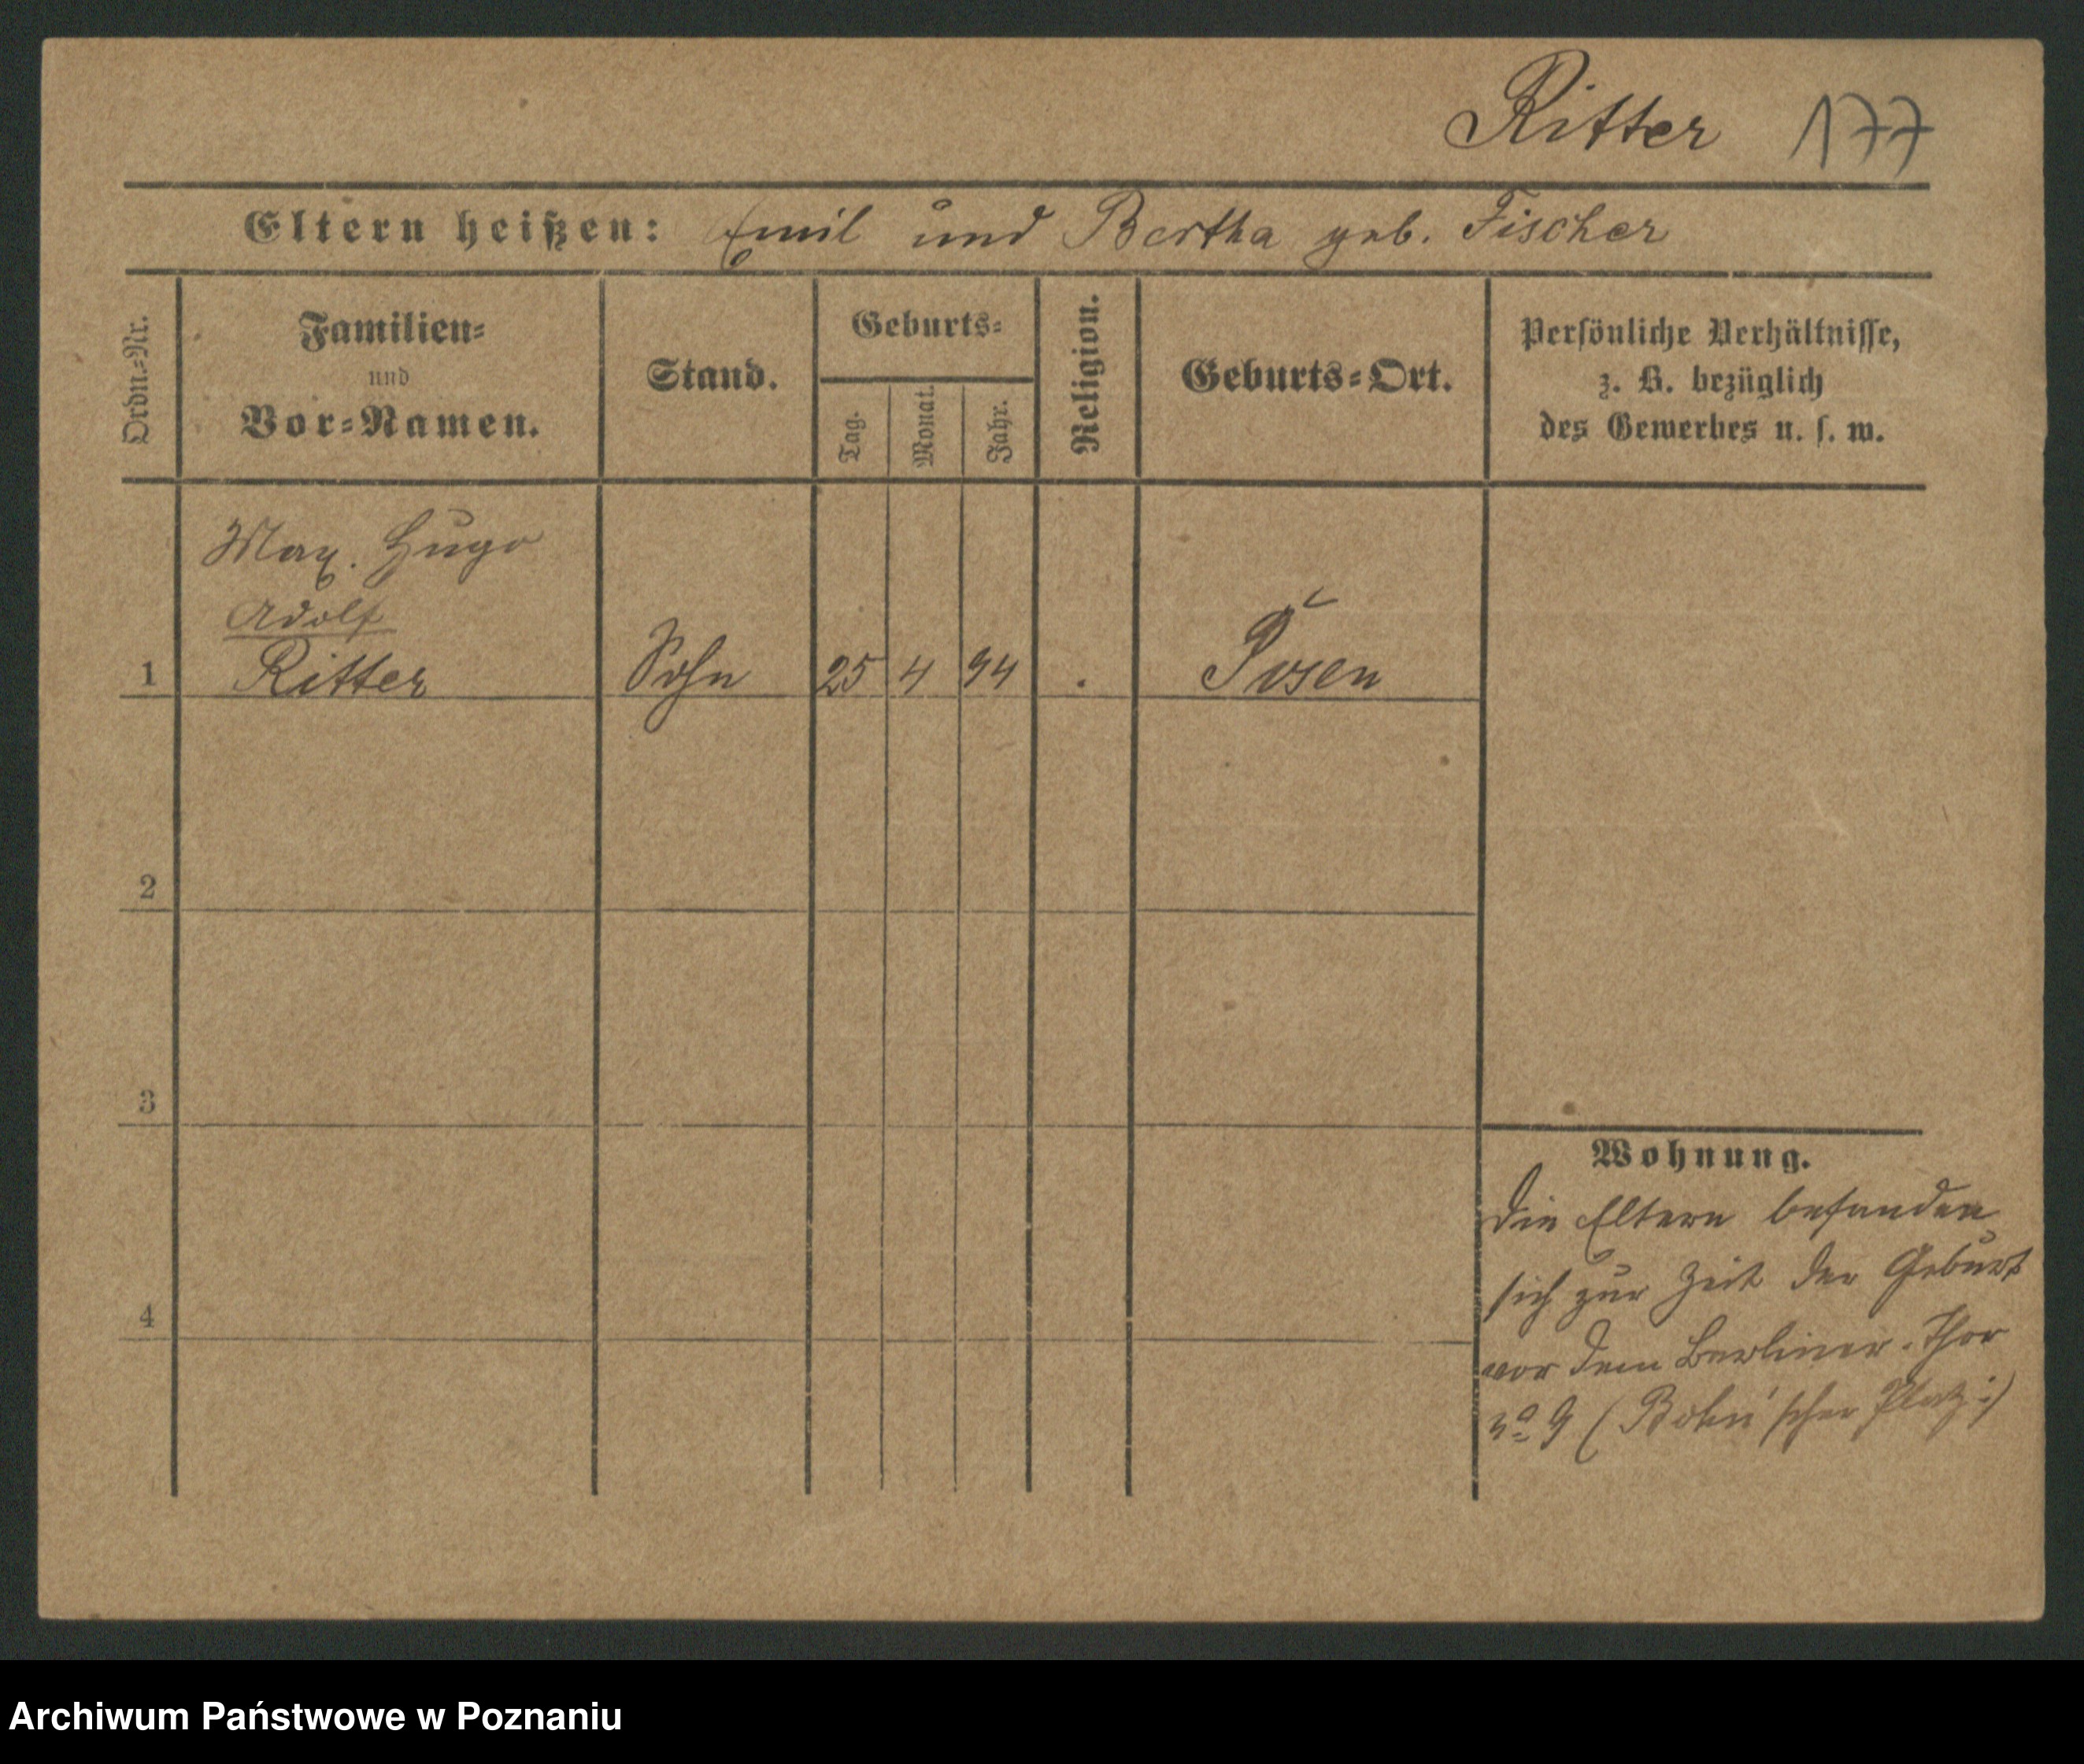 Ritter 177
Eltern heißen: Emil und Bertha geb. Fischer
Ordn.=Nr.
Familien=
und
Vor=Namen.
Stand.
Geburts=
Tag.
Monat.
Jahr.
Religion.
Geburts=Ort.
Persönliche Verhältnisse,
z. B. bezüglich
des Gewerbes u. s. w.
Max. Hugo
Adolf
1 Ritter Sohn 25 4 94 . Posen
2
3
4
Wohnung.
Die Eltern befanden
sich zur Zeit der Geburt
vor dem Berliner-Thor
No 9 ( scher Platz :)
Archiwum Państwowe w Poznaniu